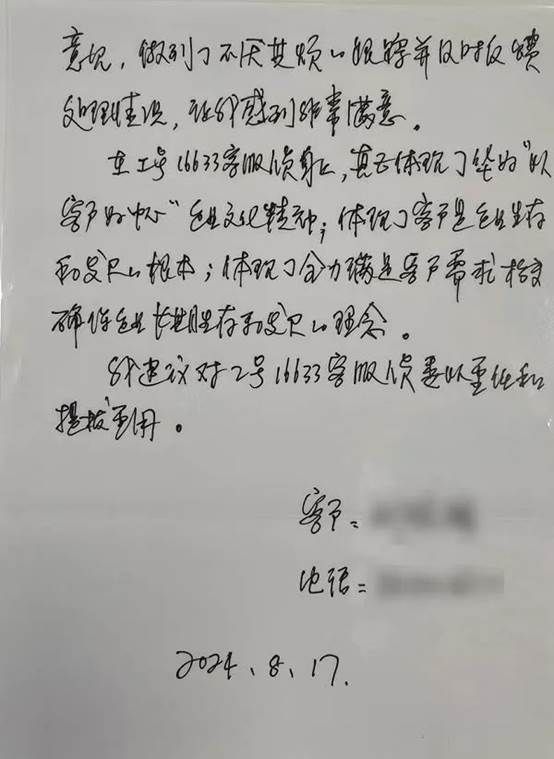 意见，做到了不厌其烦的跟踪并及时反馈
处理情况，让我感到非常满意。
在工号16633客服员身上，真正体现了华为"以
客户为中心"企业文化精神；体现了客户是企业生存
和发展的根本；体现了全力满足客户需求
确保企业长期生存和发展的理念。
我建议对工号16633客服员委以重任和
提拔重用。
客户：
电话：
2024.8.17.